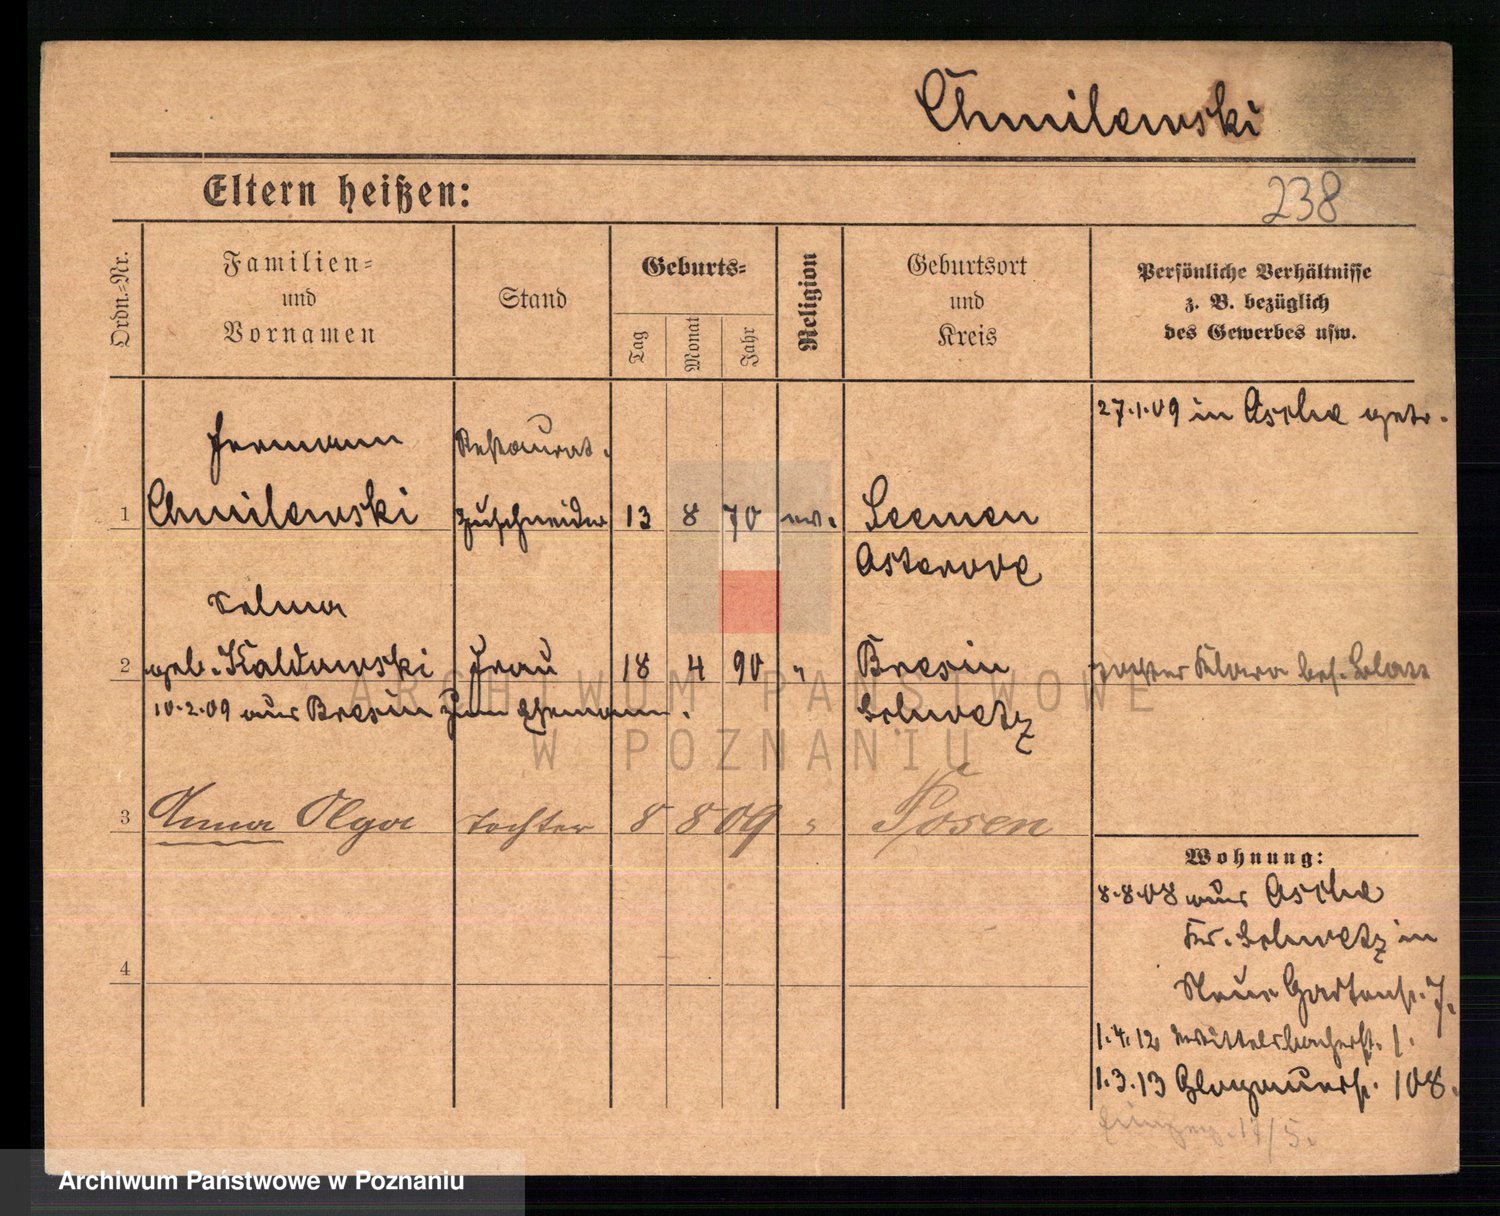 Chmilewski
Eltern heißen:
238
Ordn.-Nr.
Familien-
und
Vornamen
Stand
Geburts-
Tag
Monat
Jahr
Religion
Geburtsort
und
Kreis
Persönliche Verhältnisse
z. B. bezüglich
des Gewerbes usw.
27.1.09 in Osche getr.
Hermann
Restaurat.
1 Chmilewski Zuschneider 13 8 70 ev. Leemen
Osterode
Selma
2 geb. Kaldowski Frau 18 4 90 " Bresin
10.2.09 aus Bresin zum Ehemann. Schwetz
3 Anna Olga Tochter 8 8 09 " Posen
4
Wohnung:
8.8.08 aus Osche
Kr. Schwetz in
Neue Gartenstr. 7.
1.4.12 1.
1.3.13 Glogauerstr. 108.
17/5.
ARCHIWUM PAŃSTWOWE
W POZNANIU
Archiwum Państwowe w Poznaniu